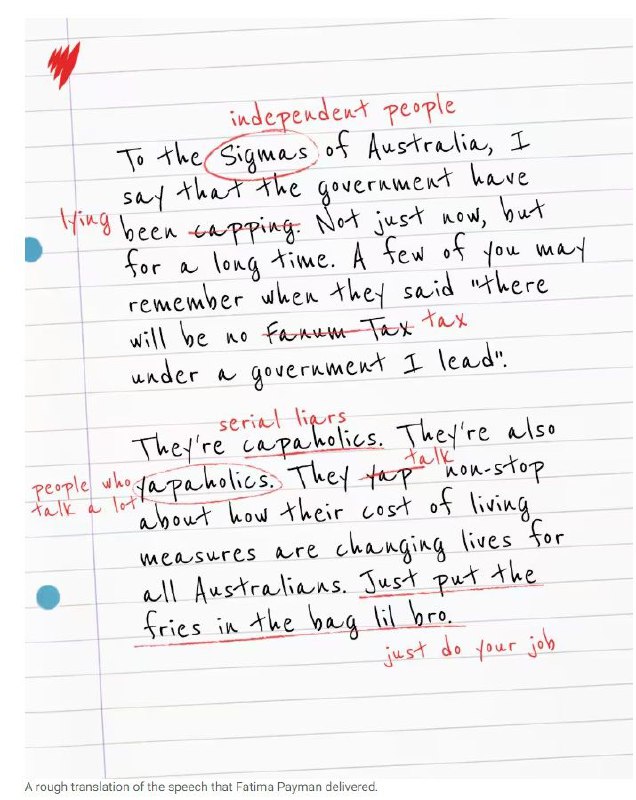 independent people
To the Sigmas of Australia, I
say that the government have
lying been capping. Not just now, but
for a long time. A few of you may
remember when they said "there
will be no Fanum Tax tax
under a government I lead".
serial liars
They're capaholics. They're also
people who talk a lot yapaholics. They yap talk non-stop
about how their cost of living
measures are changing lives for
all Australians. Just put the
fries in the bag lil bro.
just do your job
A rough translation of the speech that Fatima Payman delivered.